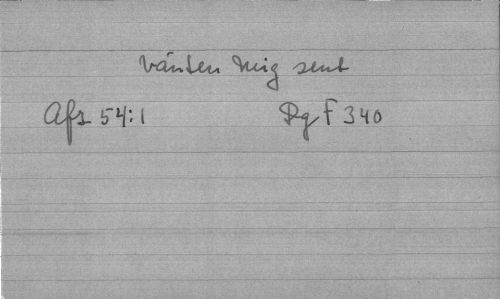 Vänten mig sent
Afz 54:1 Rg F 340